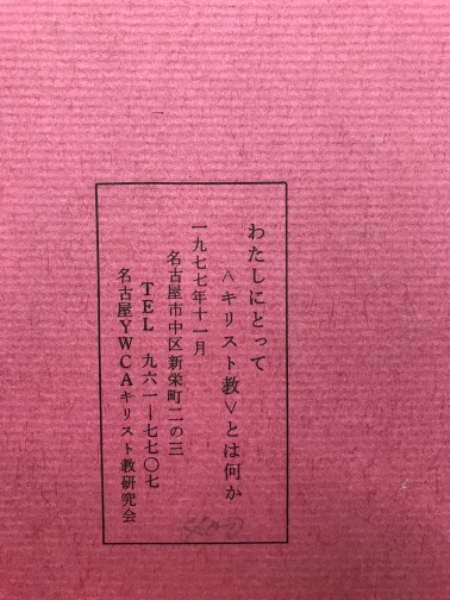 わたしにとって
＜キリスト教＞とは何か
一九七七年十一月
名古屋市中区新栄町二の三
TEL 九六一ー七七〇七
名古屋YWCAキリスト教研究会